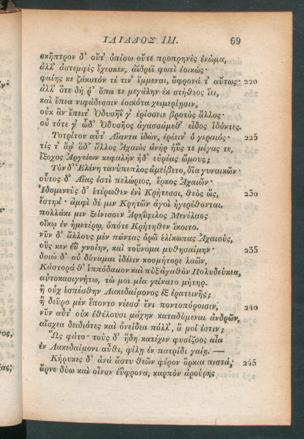 ΙΛΙΑΔΟΣ ΙΙΙ. 69
σκῆπτρον δ᾽ οὔτ᾽ ὀπίσω οὔτε προπρηνὲς ἐνώμα,
ἀλλ᾽ ἀστεμφὲς ἔχεσκεν, ἀΐδρεϊ φωτὶ ἐοικώς·
φαίης κε ζάκοτόν τέ τιν᾽ ἔμμεναι, ἄφρονά τ᾽ αὔτως· 220
ἀλλ᾽ ὅτε δή ῥ᾽ ὄπα τε μεγάλην ἐκ στήθεος ἵει,
καὶ ἔπεα νιφάδεσσιν ἐοικότα χειμερίῃσιν,
οὐκ ἂν ἔπειτ᾽ Ὀδυσῆΐ γ᾽ ἐρίσσειε βροτὸς ἄλλος·
οὐ τότε γ᾽ ὧδ᾽ Ὀδυσῆος ἀγασσάμεθ᾽ εἶδος ἰδόντες.
Τοτρίτον αὖτ᾽ Αἴαντα ἰδὼν, ἐρέειν᾽ ὁ γεραιός· 225
τίς τ᾽ ἂρ ὅδ᾽ ἄλλος Ἀχαιὸς ἀνὴρ ἠΰς τε μέγας τε,
ἔξοχος Ἀργείων κεφαλὴν ἠδ᾽ εὐρέας ὤμους;
Τὸν δ᾽ Ἑλένη τανύπεπλος ἀμείβετο, δῖα γυναικῶν·
οὗτος δ᾽ Αἴας ἐστὶ πελώριος, ἕρκος Ἀχαιῶν·
Ἰδομενεὺς δ᾽ ἑτέρωθεν ἐνὶ Κρήτεσσι, θεὸς ὣς, 230
ἕστηκ᾽· ἀμφὶ δέ μιν Κρητῶν ἀγοὶ ἠγερέθονται.
πολλάκι μιν ξείνισσεν Ἀρηΐφιλος Μενέλαος
οἴκῳ ἐν ἡμετέρῳ, ὁπότε Κρήτηθεν ἵκοιτο.
νῦν δ᾽ ἄλλους μὲν πάντας ὁρῶ ἑλίκωπας Ἀχαιοὺς,
οὕς κεν ἐῢ γνοίην, καὶ τοὔνομα μυθησαίμην· 235
δοιὼ δ᾽ οὐ δύναμαι ἰδέειν κοσμήτορε λαῶν,
Κάστορά θ᾽ ἱππόδαμον καὶ πὺξ ἀγαθὸν Πολυδεύκεα,
αὐτοκασιγνήτω, τώ μοι μία γείνατο μήτηρ.
ἢ οὐχ ἑσπέσθην Λακεδαίμονος ἐξ ἐρατεινῆς;
ἢ δεῦρο μὲν ἕποντο νέεσσ᾽ ἔνι ποντοπόροισιν, 240
νῦν αὖτ᾽ οὐκ ἐθέλουσι μάχην καταδύμεναι ἀνδρῶν,
αἴσχεα δειδιότες καὶ ὀνείδεα πόλλ᾽, ἅ μοί ἐστιν;
Ὣς φάτο· τοὺς δ᾽ ἤδη κατέχεν φυσίζοος αἶα
ἐν Λακεδαίμονι αὖθι, φίλῃ ἐν πατρίδι γαίῃ.—
Κήρυκες δ᾽ ἀνὰ ἄστυ θεῶν φέρον ὅρκια πιστά, 245
ἄρνε δύω καὶ οἶνον ἐΰφρονα, καρπὸν ἀρούρης